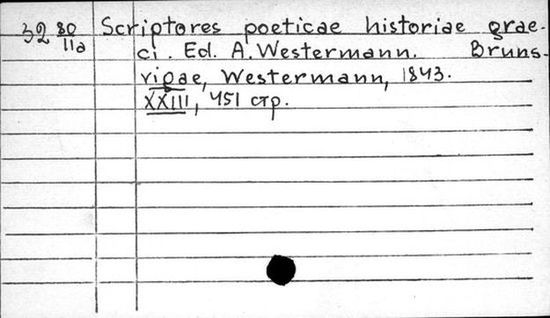 32 80/11a Scriptores poeticae historiae grae-
ci. Ed. A. Westermann. Bruns-
vigae, Westermann, 1843.
XXIII, 451 стр.